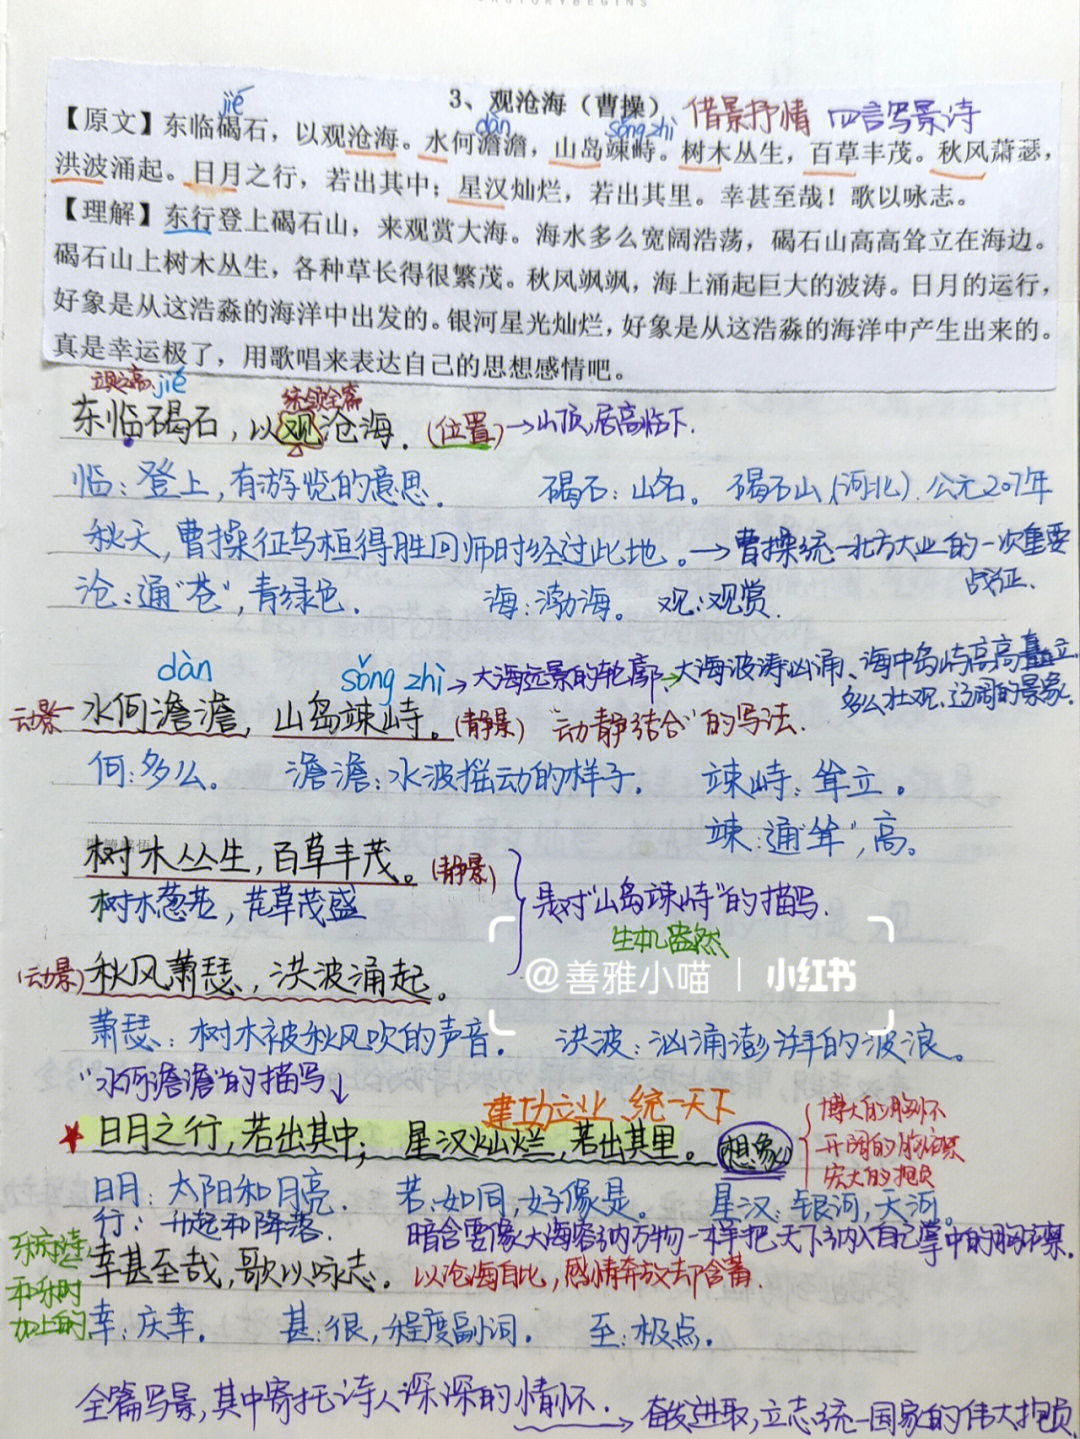 jié
3、观沧海（曹操） 借景抒情 四言写景诗
dàn sǒng zhì
【原文】东临碣石，以观沧海。水何澹澹，山岛竦峙。树木丛生，百草丰茂。秋风萧瑟，
洪波涌起。日月之行，若出其中；星汉灿烂，若出其里。幸甚至哉！歌以咏志。
【理解】东行登上碣石山，来观赏大海。海水多么宽阔浩荡，碣石山高高耸立在海边。
碣石山上树木丛生，各种草长得很繁茂。秋风飒飒，海上涌起巨大的波涛。日月的运行，
好象是从这浩淼的海洋中出发的。银河星光灿烂，好象是从这浩淼的海洋中产生出来的。
真是幸运极了，用歌唱来表达自己的思想感情吧。
jié 统领全篇
东临碣石，以观沧海。(位置)→山顶，居高临下.
临：登上，有游览的意思. 碣石：山名。碣石山(河北). 公元207年
秋天，曹操征乌桓得胜回师时经过此地。→曹操统一北方大业的一次重要
战征.
沧：通"苍"，青绿色. 海：渤海。 观：观赏
dàn sǒng zhì →大海远景的轮廓→大海波涛汹涌、海中岛屿高高矗立
多么壮观、辽阔的景象.
动景 水何澹澹，山岛竦峙。(静景) "动静结合"的写法.
何：多么。 澹澹：水波摇动的样子. 竦峙：耸立。
竦：通"耸"，高。
树木丛生，百草丰茂。(静景)
树木葱茏，花草茂盛 是对"山岛竦峙"的描写.
生机盎然
(动景)秋风萧瑟，洪波涌起。
@善雅小喵 | 小红书
萧瑟：树木被秋风吹的声音. 洪波：汹涌澎湃的波浪。
"水何澹澹"的描写↓
建功立业、统一天下
★日月之行，若出其中；星汉灿烂，若出其里。想象
博大的胸怀
开阔的胸襟
宏大的抱负
日月：太阳和月亮. 若：如同，好像是. 星汉：银河，天河。
行：升起和降落. 暗含要像大海容纳万物一样把天下纳入自己掌中的胸襟.
乐府诗
和乐时
加上的
幸甚至哉，歌以咏志. 以沧海自比，感情奔放却含蓄.
幸：庆幸. 甚：很，程度副词. 至：极点.
全篇写景，其中寄托诗人深深的情怀. →奋发进取，立志统一国家的伟大抱负.